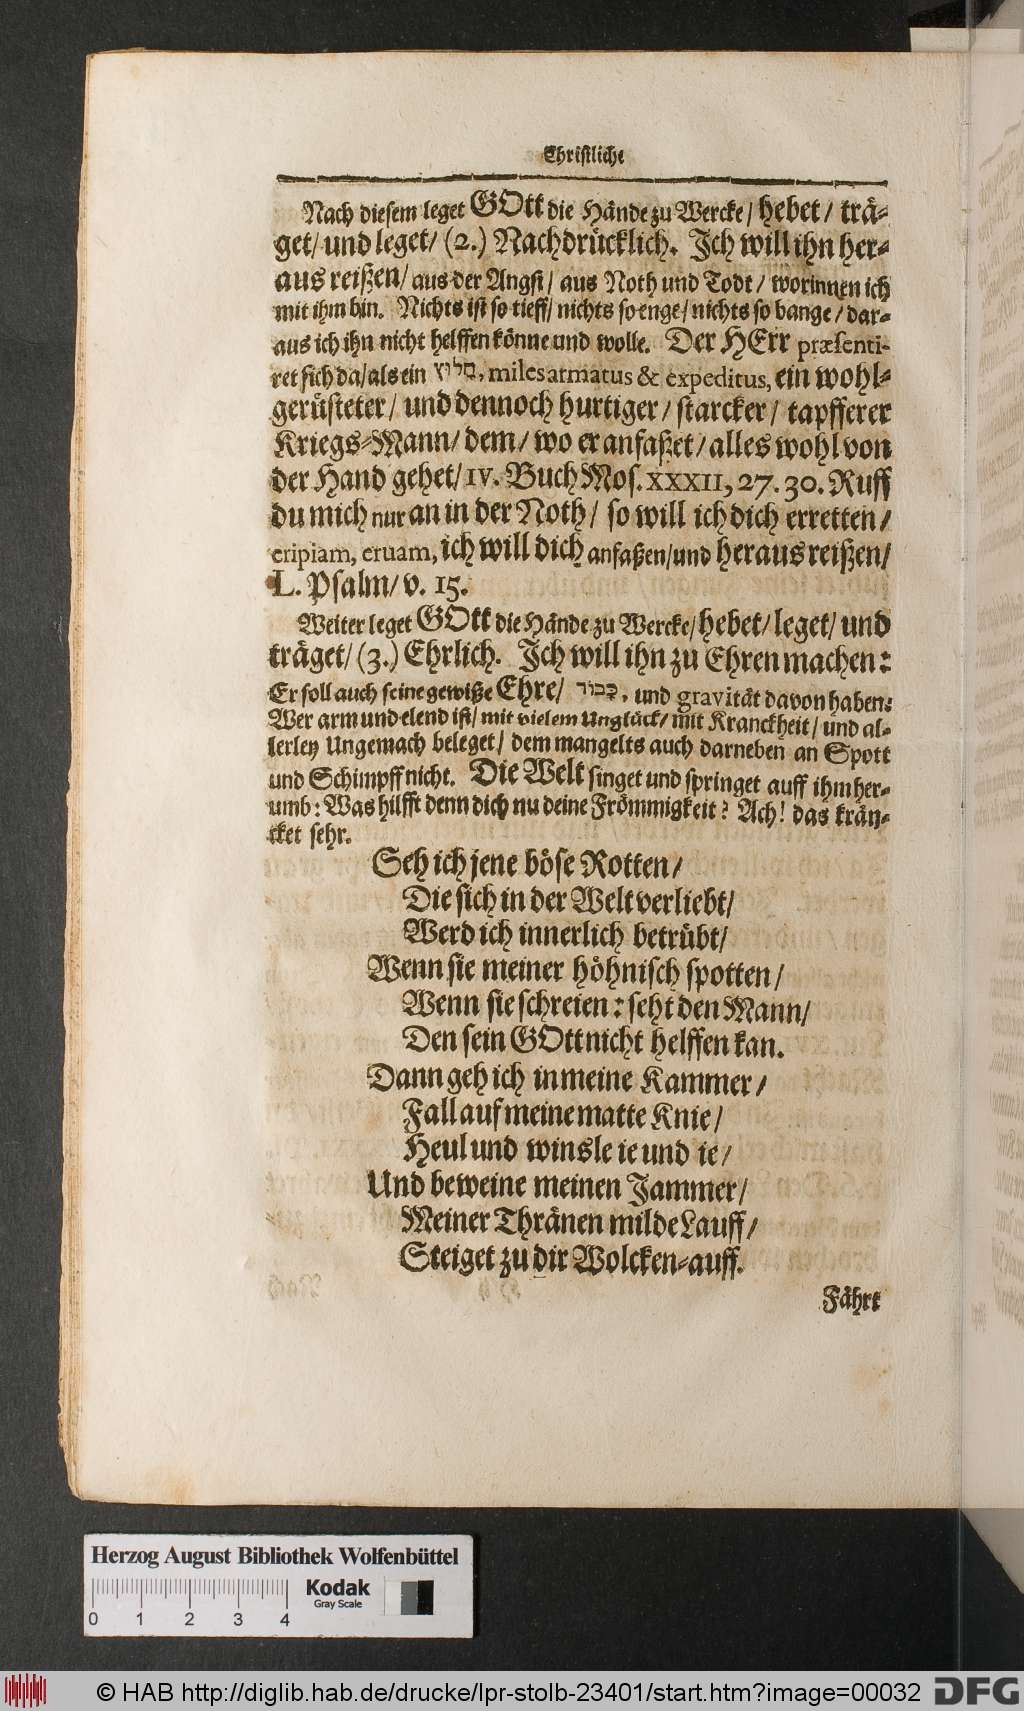 Christliche
Nach diesem leget GOtt die Hände zu Wercke/ hebet/ trä-
get/ und leget/ (2.) Nachdrücklich. Ich will ihn her-
aus reißen/ aus der Angst/ aus Noth und Todt/ worinnen ich
mit ihm bin. Nichts ist so tieff/ nichts so enge/ nichts so bange/ dar-
aus ich ihn nicht helffen könne und wolle. Der HErr præsenti-
ret sich da/ als ein חלוץ, miles armatus & expeditus, ein wohl-
gerüsteter/ und dennoch hurtiger/ starcker/ tapfferer
Kriegs-Mann/ dem/ wo er anfaßet/ alles wohl von
der Hand gehet/ IV. Buch Mos. XXXII, 27. 30. Ruff
du mich nur an in der Noth/ so will ich dich erretten/
eripiam, eruam, ich will dich anfaßen/ und heraus reißen/
L. Psalm/ v. 15.
Weiter leget GOtt die Hände zu Wercke/ hebet/ leget/ und
träget/ (3.) Ehrlich. Ich will ihn zu Ehren machen:
Er soll auch seine gewiße Ehre/ כבוד, und gravität davon haben:
Wer arm und elend ist/ mit vielem Unglück/ mit Kranckheit/ und al-
lerley Ungemach beleget/ dem mangelts auch darneben an Spott
und Schimpff nicht. Die Welt singet und springet auff ihm her-
umb: Was hilfft denn dich nu deine Frömmigkeit? Ach! das krän-
cket sehr.
Seh ich jene böse Rotten/
Die sich in der Welt verliebt/
Werd ich innerlich betrübt/
Wenn sie meiner höhnisch spotten/
Wenn sie schreien: seht den Mann/
Den sein GOtt nicht helffen kan.
Dann geh ich in meine Kammer/
Fall auf meine matte Knie/
Heul und winsle ie und ie/
Und beweine meinen Jammer/
Meiner Thränen milde Lauff/
Steiget zu dir Wolcken-auff.
Fährt
Herzog August Bibliothek Wolfenbüttel
Kodak
Gray Scale
0 1 2 3 4
© HAB http://diglib.hab.de/drucke/lpr-stolb-23401/start.htm?image=00032
DFG